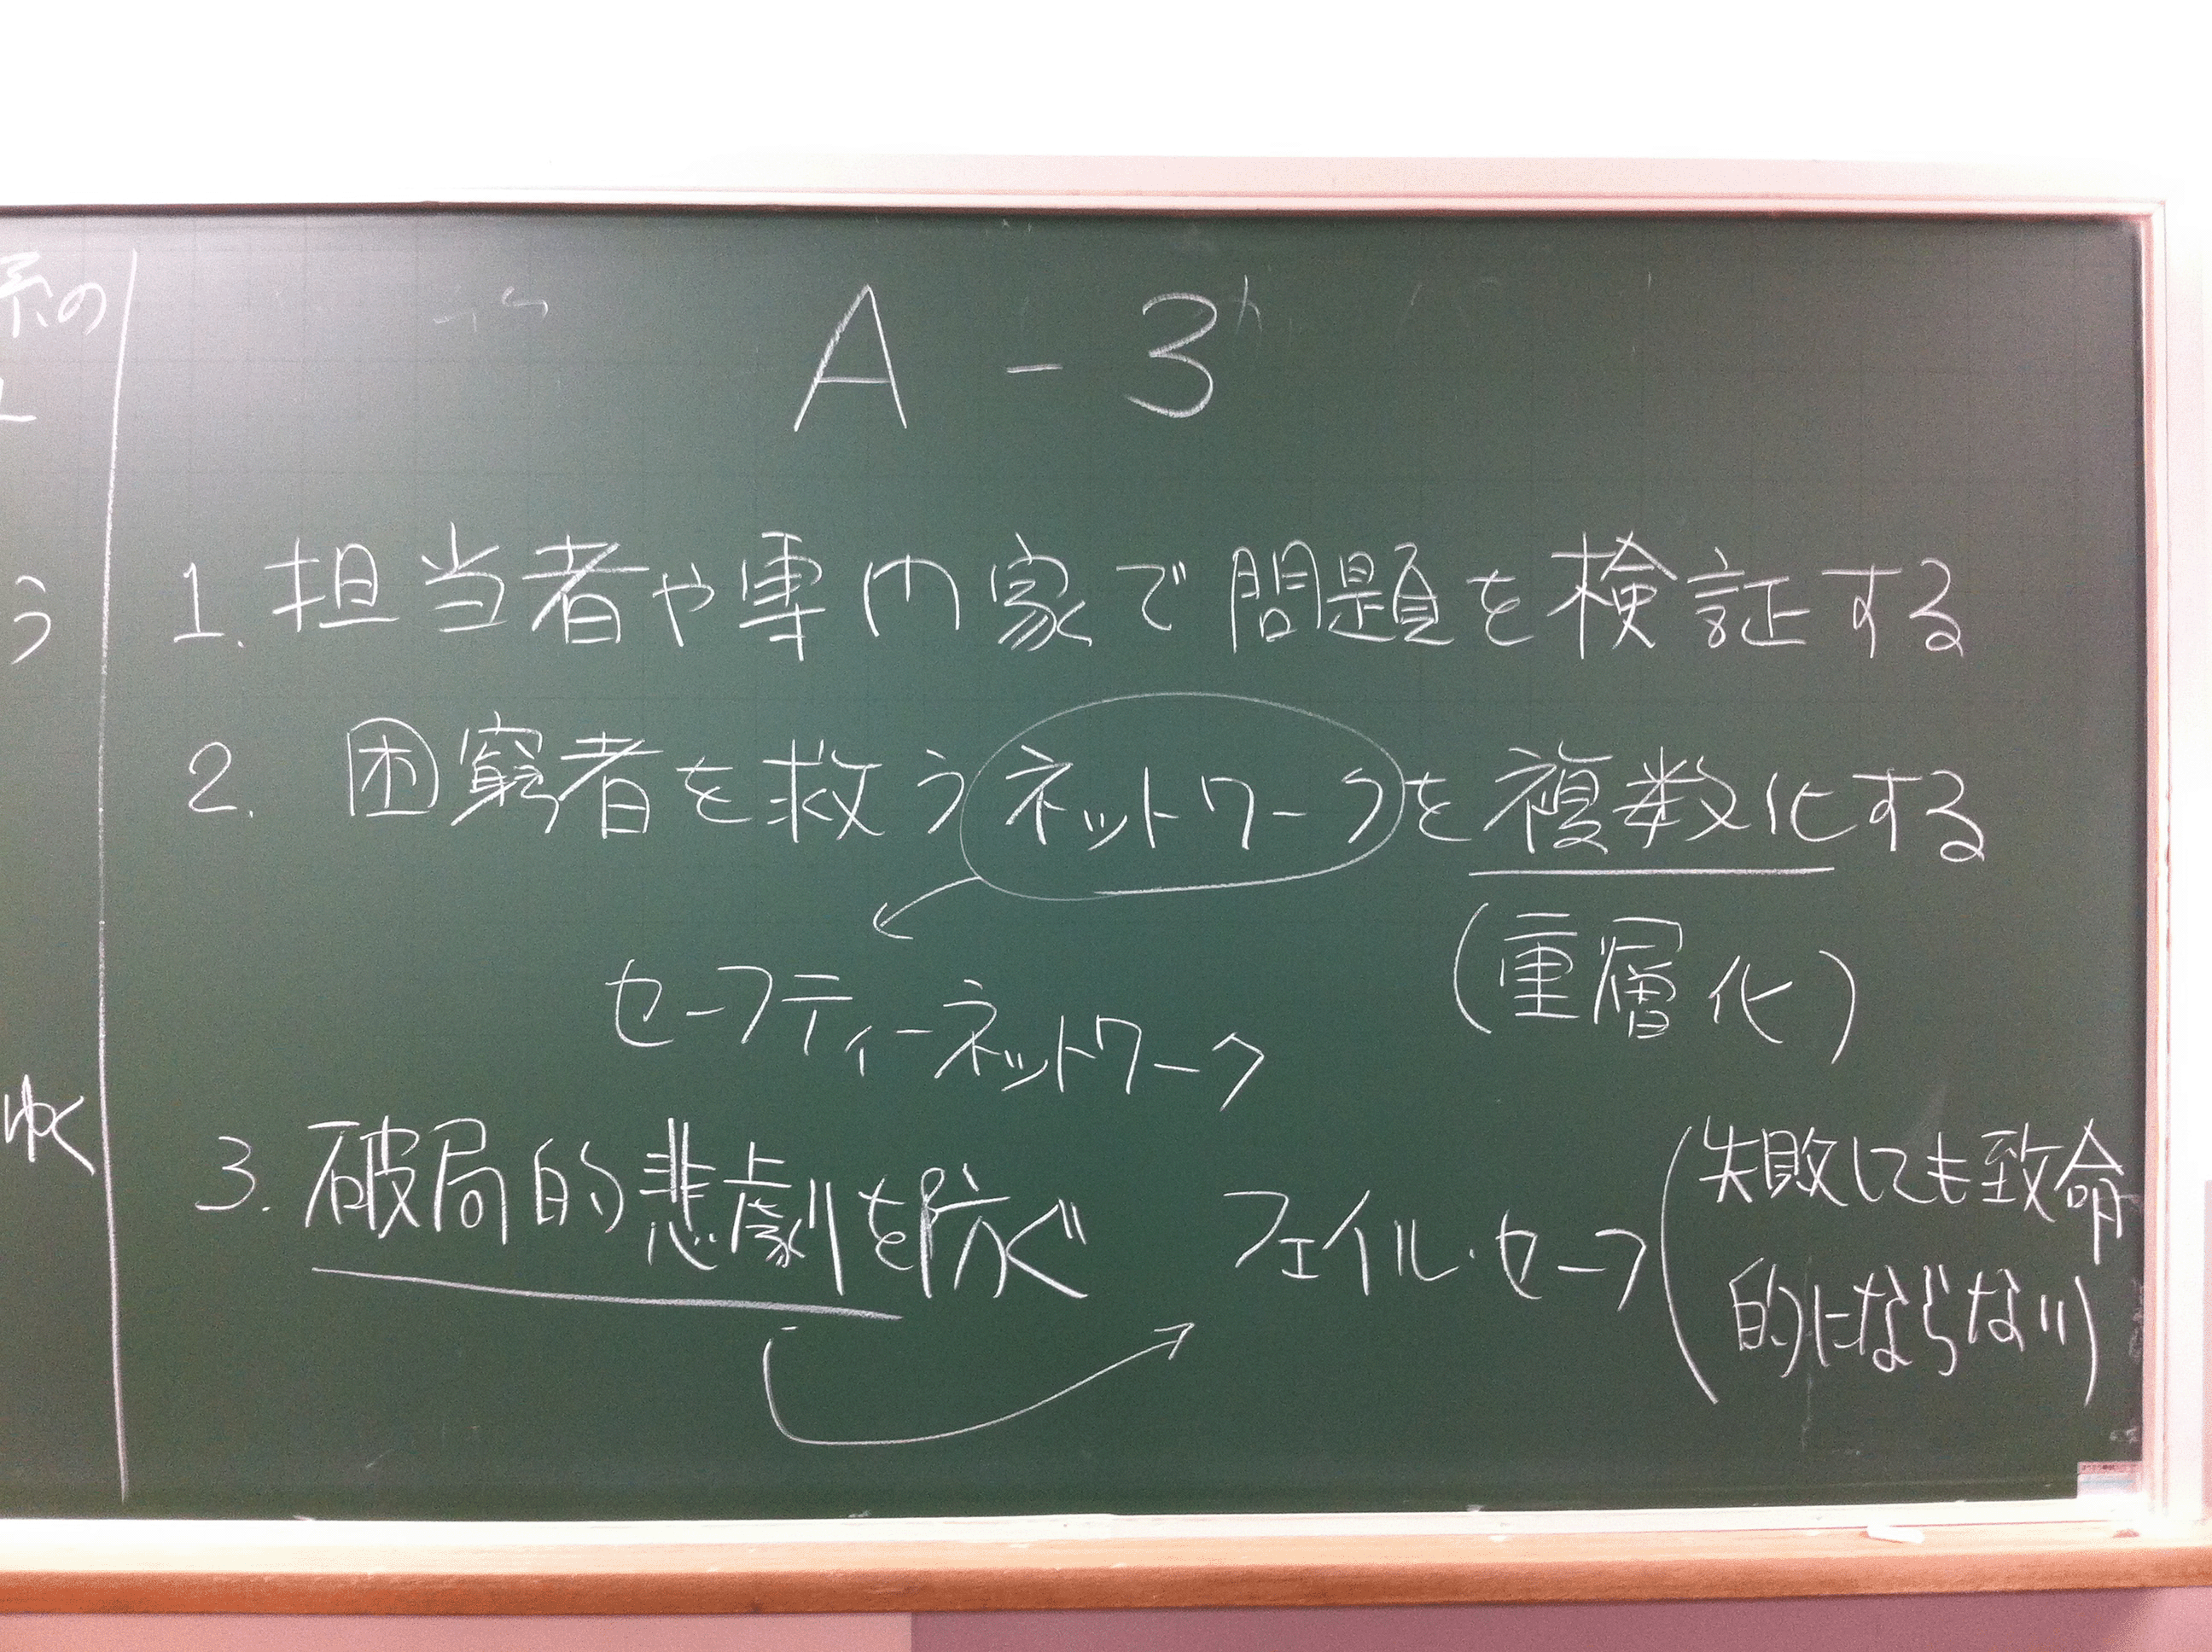 系の
う
ゆく
A - 3
1. 担当者や専門家で問題を検証する
2. 困窮者を救うネットワークを複数化する
(重層化)
セーフティーネットワーク
3. 破局的悲劇を防ぐ フェイル・セーフ
(失敗しても致命
的にならない)